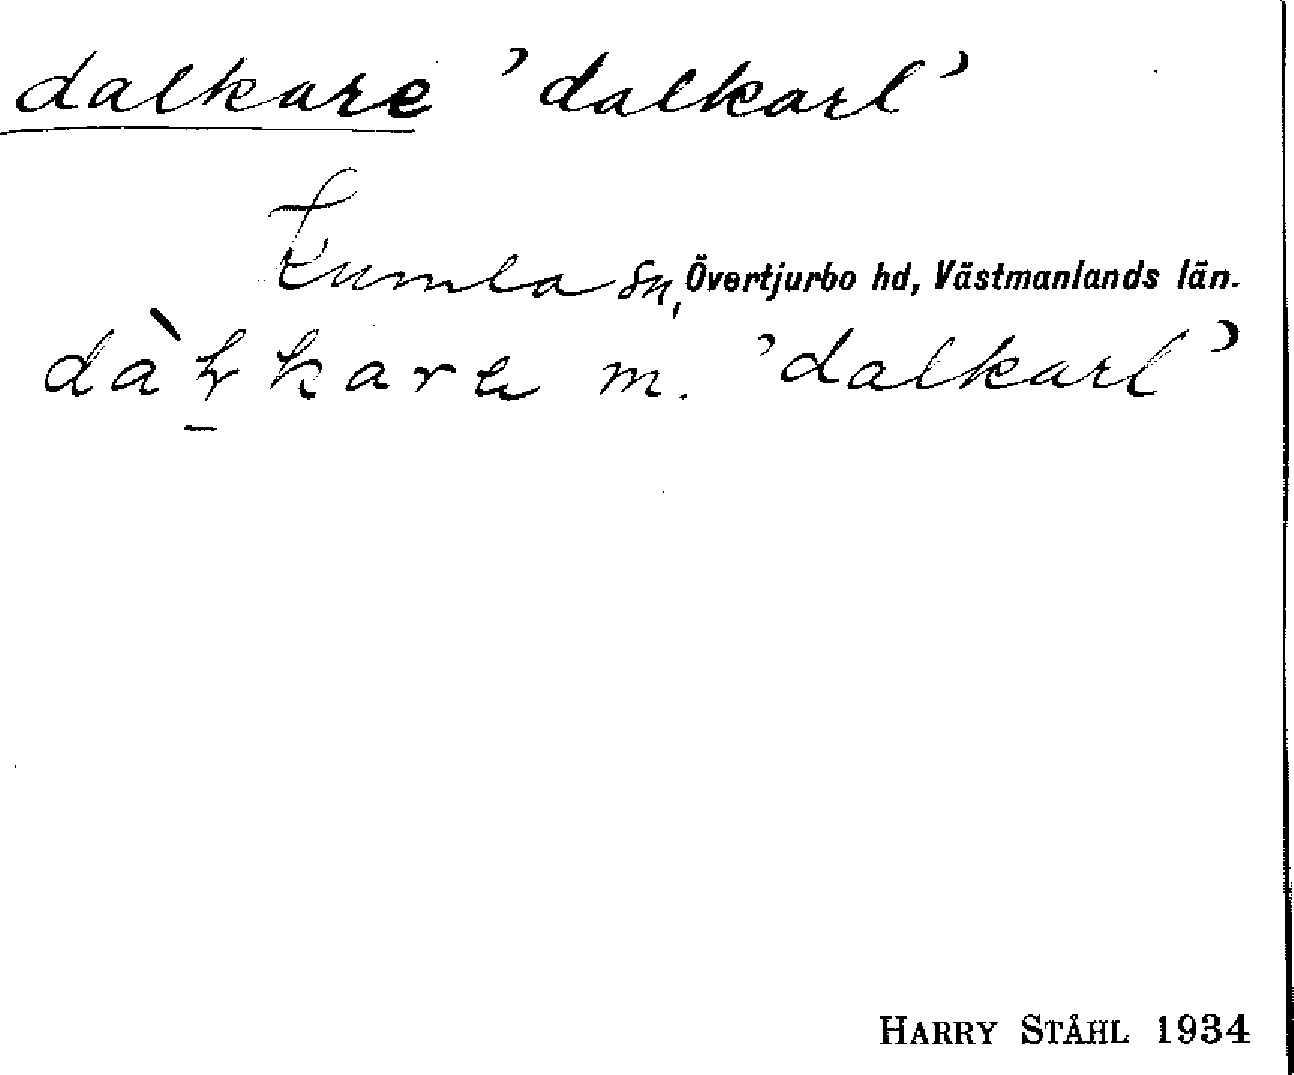 dalkare ’dalkarl’
Kumla sn, Övertjurbo hd, Västmanlands län.
m. ’dalkarl’
HARRY STÅHL 1934